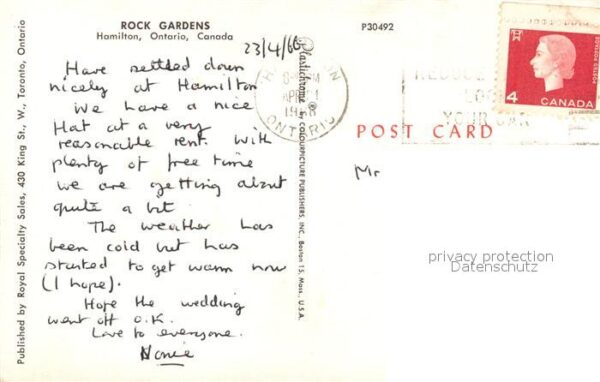 ROCK GARDENS
Hamilton, Ontario, Canada
P30492
23/4/66
Have settled down
nicely at Hamilton
We have a nice
flat at a very
reasonable rent. With
plenty of free time
we are getting about
quite a bit
The weather has
been cold but has
started to get warm now
(I hope).
Hope the wedding
went off O.K.
Love to everyone.
Published by Royal Specialty Sales, 430 King St., W., Toronto, Ontario
Plastichrome ® by COLOURPICTURE PUBLISHERS, INC., Boston 15, Mass., U.S.A.
ONTARIO
YOUR CAR
4
CANADA
POST CARD
Mr
privacy protection
Datenschutz